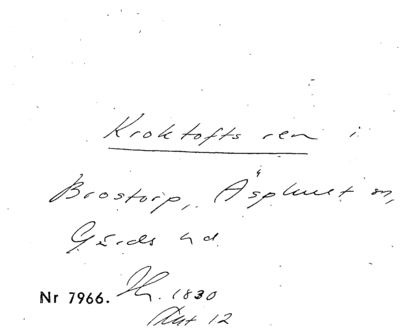 Kroktofts ren i
Brostorp, Äsphult sn,
Gärds hd.
Nr 7966. 1830
Akt 12